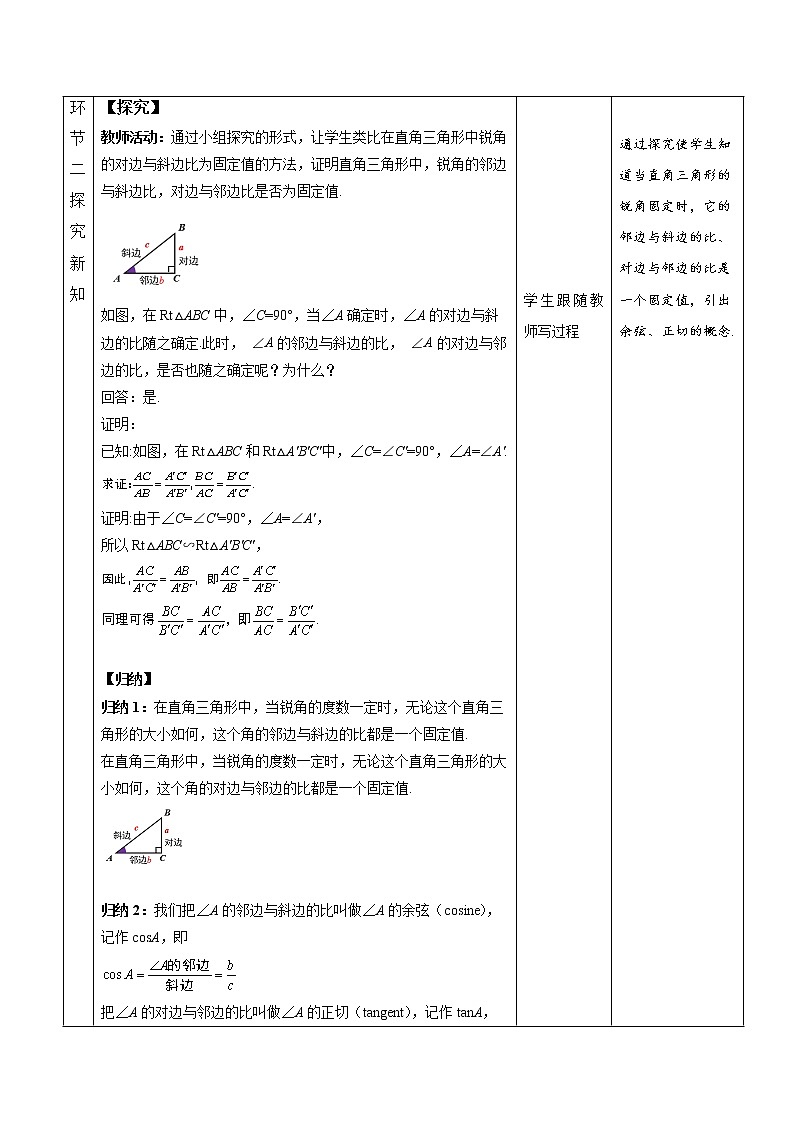 环
节
二
探
究
新
知
【探究】
教师活动：通过小组探究的形式，让学生类比在直角三角形中锐角
的对边与斜边比为固定值的方法，证明直角三角形中，锐角的邻边
与斜边比，对边与邻边比是否为固定值.
B
斜边 c a 对边
A 邻边b C
如图，在 Rt△ABC 中，∠C=90°，当∠A 确定时，∠A 的对边与斜
边的比随之确定.此时， ∠A 的邻边与斜边的比， ∠A 的对边与邻
边的比，是否也随之确定呢？为什么？
回答：是.
证明：
已知:如图，在 Rt△ABC 和 Rt△A′B′C′中，∠C=∠C′=90°，∠A=∠A′.
求证:AC/AB=A′C′/A′B′,BC/AC=B′C′/A′C′.
证明:由于∠C=∠C′=90°，∠A=∠A′，
所以 Rt△ABC∽Rt△A′B′C′，
因此,AC/A′C′=AB/A′B′，即AC/AB=A′C′/A′B′.
同理可得BC/B′C′=AC/A′C′，即BC/AC=B′C′/A′C′.
【归纳】
归纳 1：在直角三角形中，当锐角的度数一定时，无论这个直角三
角形的大小如何，这个角的邻边与斜边的比都是一个固定值.
在直角三角形中，当锐角的度数一定时，无论这个直角三角形的大
小如何，这个角的对边与邻边的比都是一个固定值.
B
斜边 c a 对边
A 邻边b C
归纳 2：我们把∠A 的邻边与斜边的比叫做∠A 的余弦（cosine），
记作 cosA，即
cos A=∠A的邻边/斜边=b/c
把∠A 的对边与邻边的比叫做∠A 的正切（tangent），记作 tanA，
学生跟随教
师写过程
通过探究使学生知
道当直角三角形的
锐角固定时，它的
邻边与斜边的比、
对边与邻边的比是
一个固定值，引出
余弦、正切的概念.